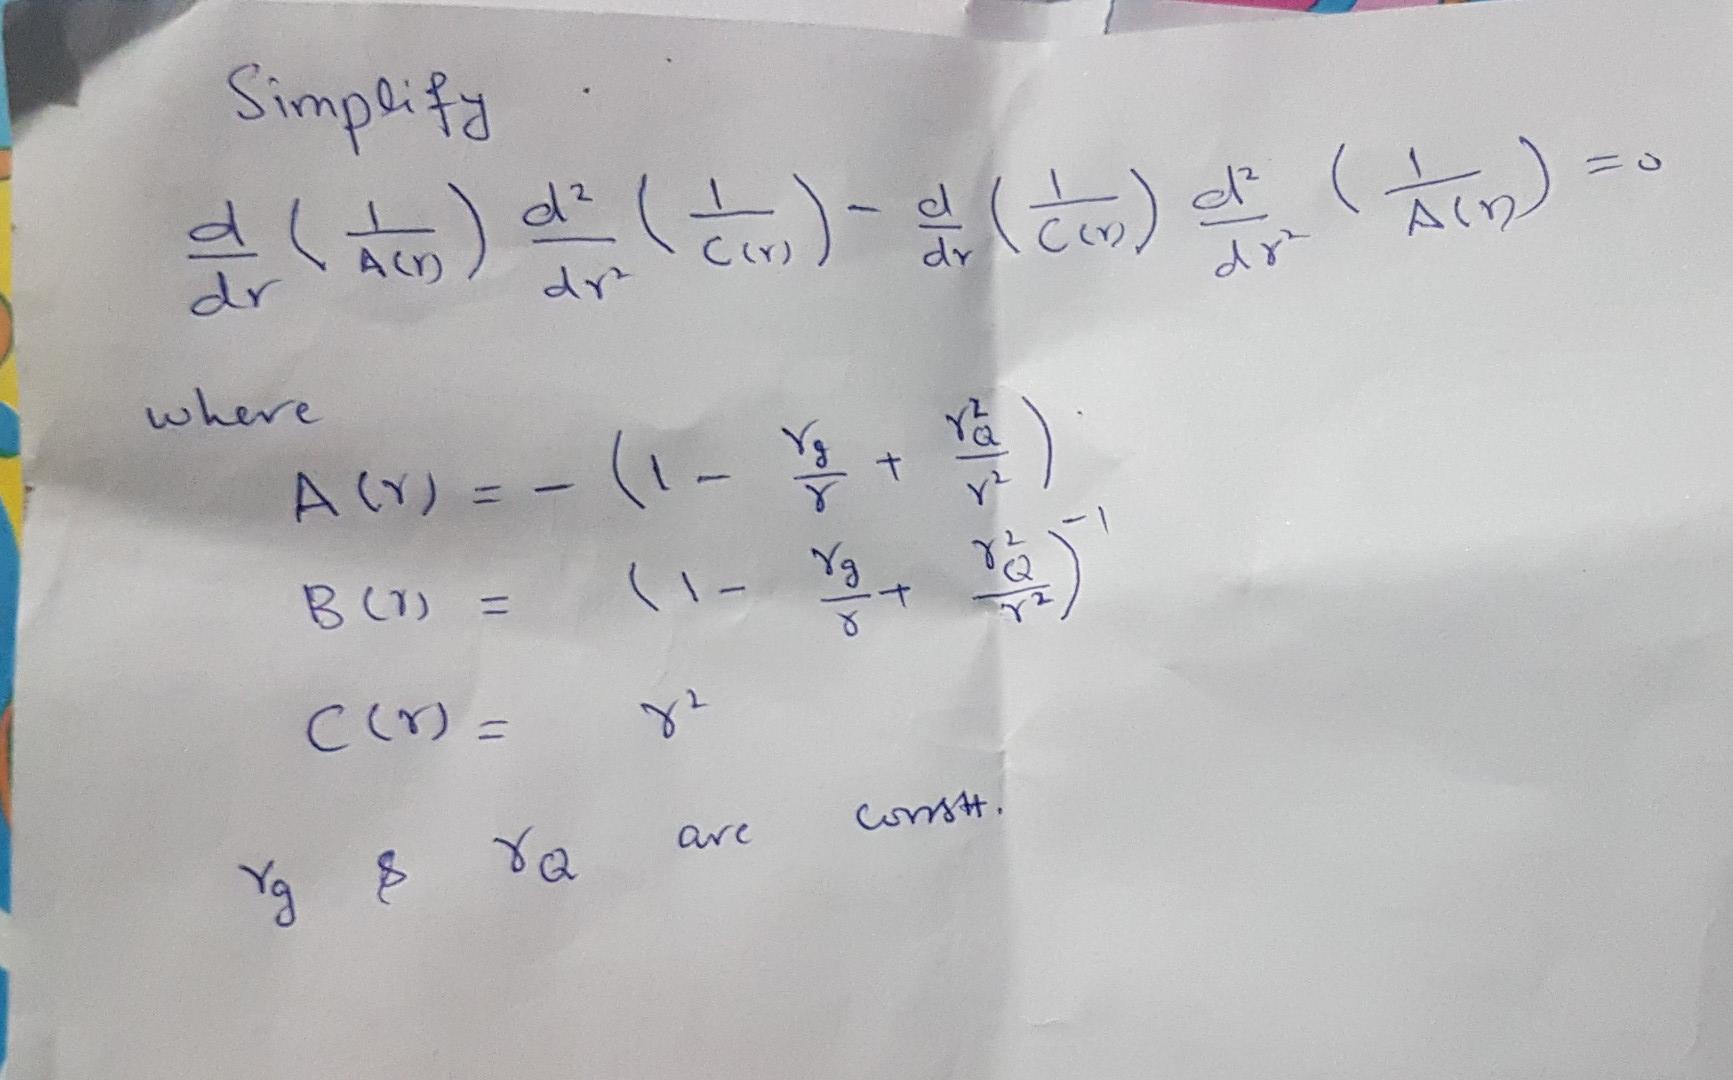 Simplify
d/dr (1/A(r)) d²/dr² (1/C(r)) - d/dr (1/C(r)) d²/dr² (1/A(r)) = 0
where
A(r) = - (1 - r_g/r + r_Q²/r²)
B(r) = (1 - r_g/r + r_Q²/r²)⁻¹
C(r) = r²
r_g & r_Q are constt.